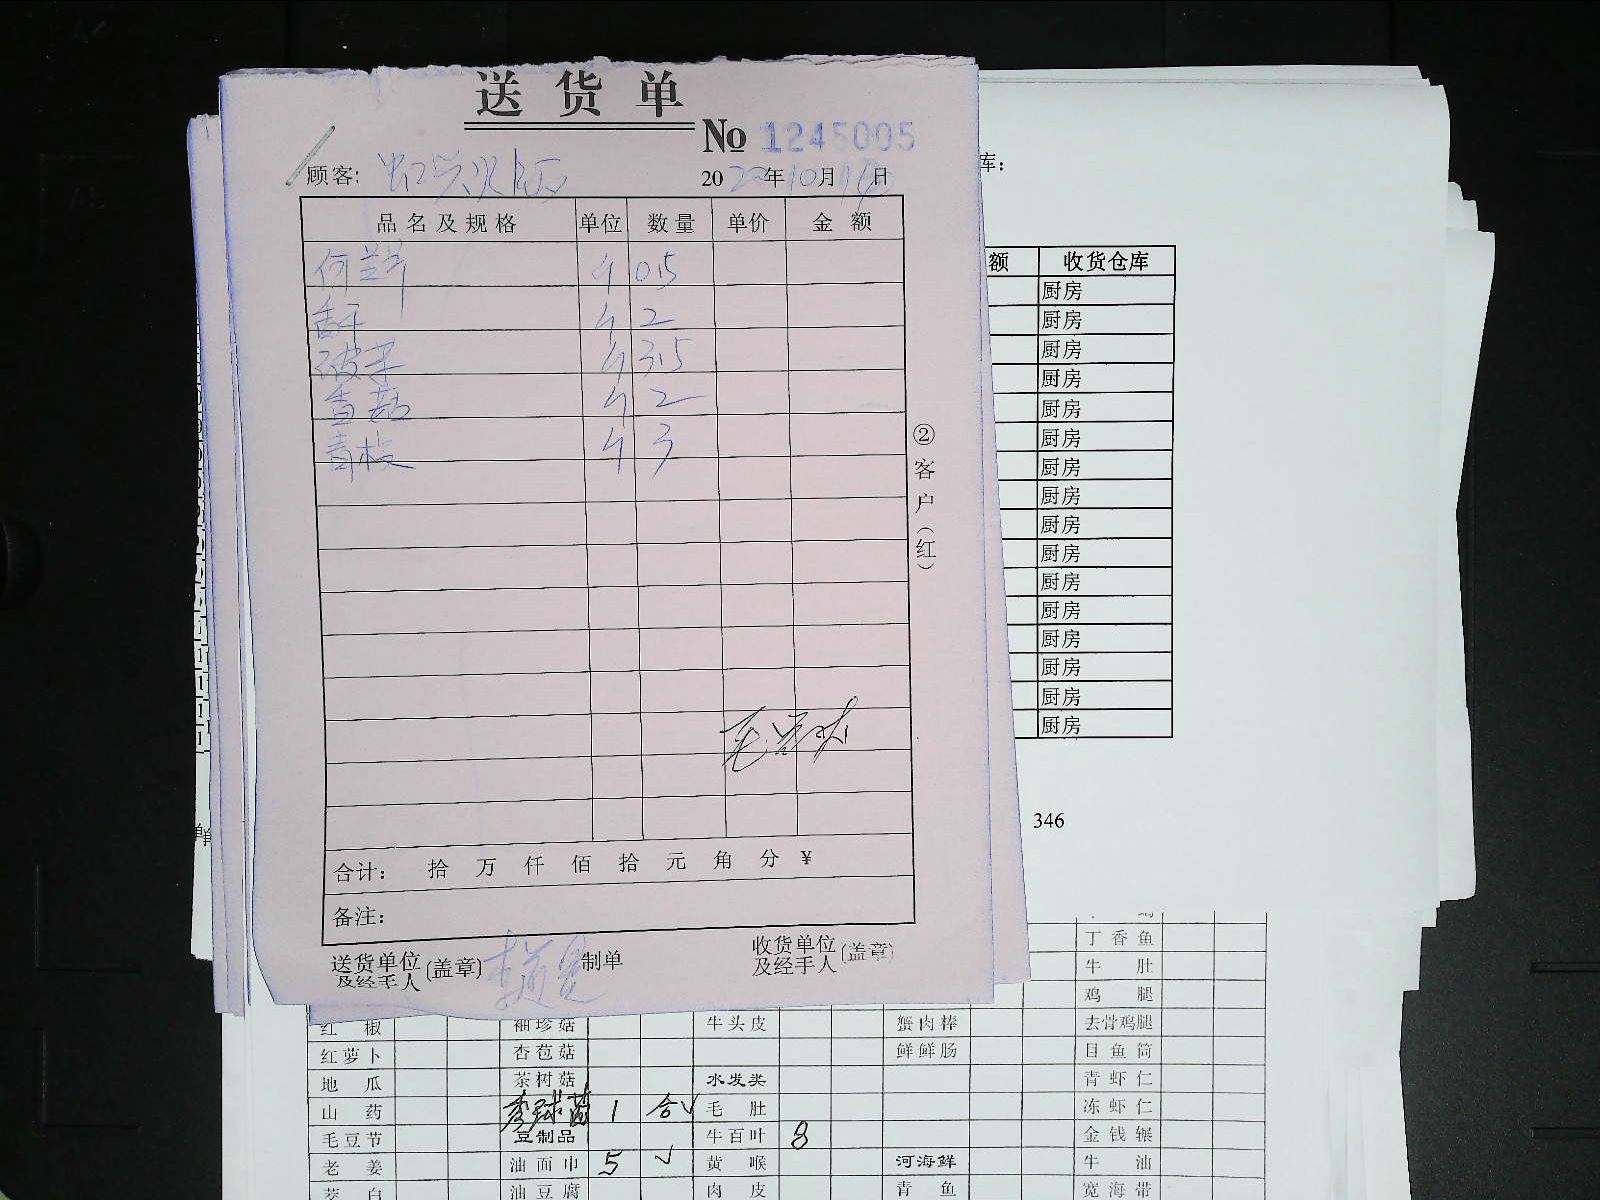 送货单
No 1245005
顾客:
2022年10月14日
品名及规格 单位 数量 单价 金额
斤 0.5
香干 斤 2
菠菜 斤 3.5
香菇 斤 2
斤 3
合计: 拾 万 仟 佰 拾 元 角 分 ¥
备注:
送货单位及经手人(盖章) 制单 收货单位及经手人(盖章)
②客户(红)
库:
额 收货仓库
厨房
厨房
厨房
厨房
厨房
厨房
厨房
厨房
厨房
厨房
厨房
厨房
厨房
厨房
厨房
厨房
346
丁香鱼
牛肚
鸡腿
红椒 袖珍菇 牛头皮 蟹肉棒 去骨鸡腿
红萝卜 杏苞菇 鲜鲜肠 目鱼筒
地瓜 茶树菇 水发类 青虾仁
山药 1 合√ 毛肚 冻虾仁
毛豆节 豆制品 牛百叶 8 金钱辗
老姜 油面巾 5 √ 黄喉 河海鲜 牛油
茭白 油豆腐 肉皮 青鱼 宽海带